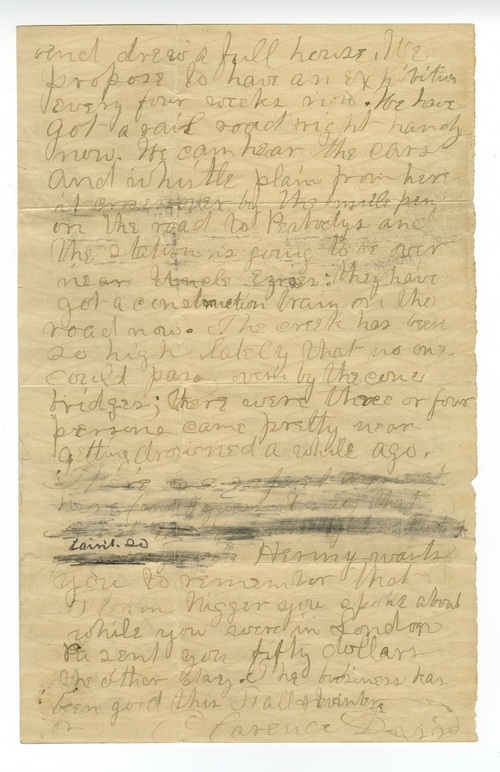 and drew a full house. We
propose to have an exhibition
every four weeks now. We have
got a rail road right handy
now. We can hear the cars
and whistle plain from here
it crosses over by the mule pen
on the road to Peabodys and
the station is going to be over
near Uncle Ezras: they have
got a construction train on the
road now. The creek has been
so high lately that no one
could pass over by the cone
bridges; there were three or four
persons came pretty near
getting drowned a while ago.
taint so
Henny wants
you to remember that
train Nigger you spoke about
while you were in London
Pa sent you fifty dollars
the other day. The business has
been good this Fall & winter
Clarence